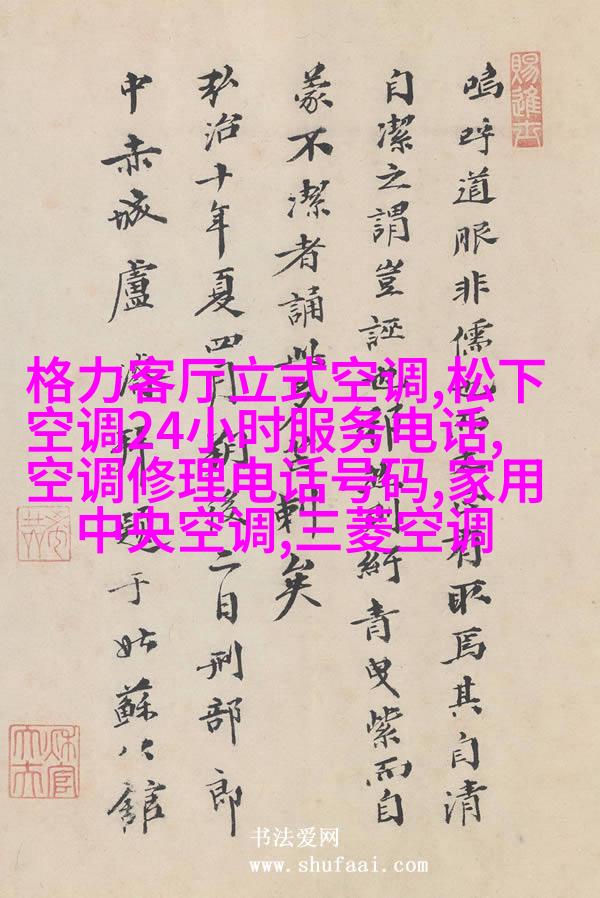 嗚呼道服非儒也有取焉其自清
自潔之謂豈誣則紆青曳紫而自
蒙不潔者誦此矣
弘治十年夏四月朔後二日刑部郎
中赤城盧濬拜題于姑蘇公館
格力客厅立式空调,松下
空调24小时服务电话,
空调修理电话号码,家用
中央空调,三菱空调
书法爱网
www.shufaai.com